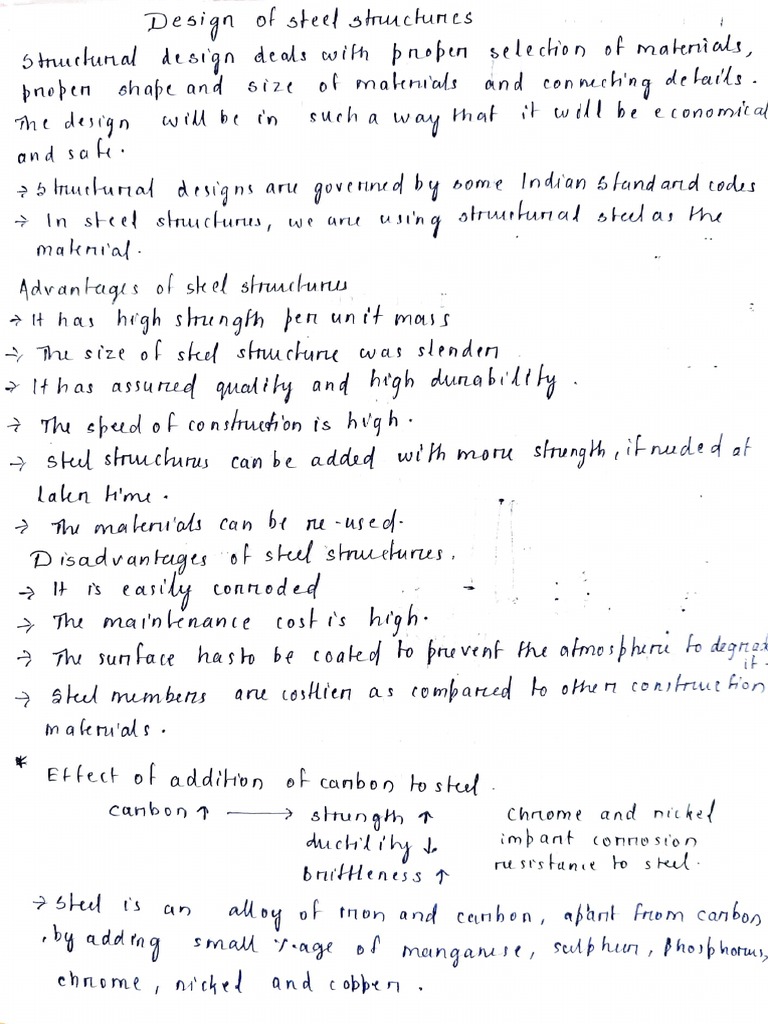 Design of steel structures
Structural design deals with proper selection of materials,
proper shape and size of materials and connecting details.
The design will be in such a way that it will be economical
and safe.
→ Structural designs are governed by some Indian Standard codes
→ In steel structures, we are using structural steel as the
material.
Advantages of steel structures
→ It has high strength per unit mass
→ The size of steel structure was slender
→ It has assured quality and high durability.
→ The speed of construction is high.
→ Steel structures can be added with more strength, if needed at
later time.
→ The materials can be re-used.
Disadvantages of steel structures.
→ It is easily corroded
→ The maintenance cost is high.
→ The surface has to be coated to prevent the atmosphere to
it.
→ Steel members are costlier as compared to other construction
materials.
* Effect of addition of carbon to steel.
carbon ↑ → strength ↑ chrome and nickel
ductility ↓ impart corrosion
brittleness ↑ resistance to steel.
→ Steel is an alloy of iron and carbon, apart from carbon
, by adding small %age of manganese, sulphur, phosphorus,
chrome, nickel and copper.